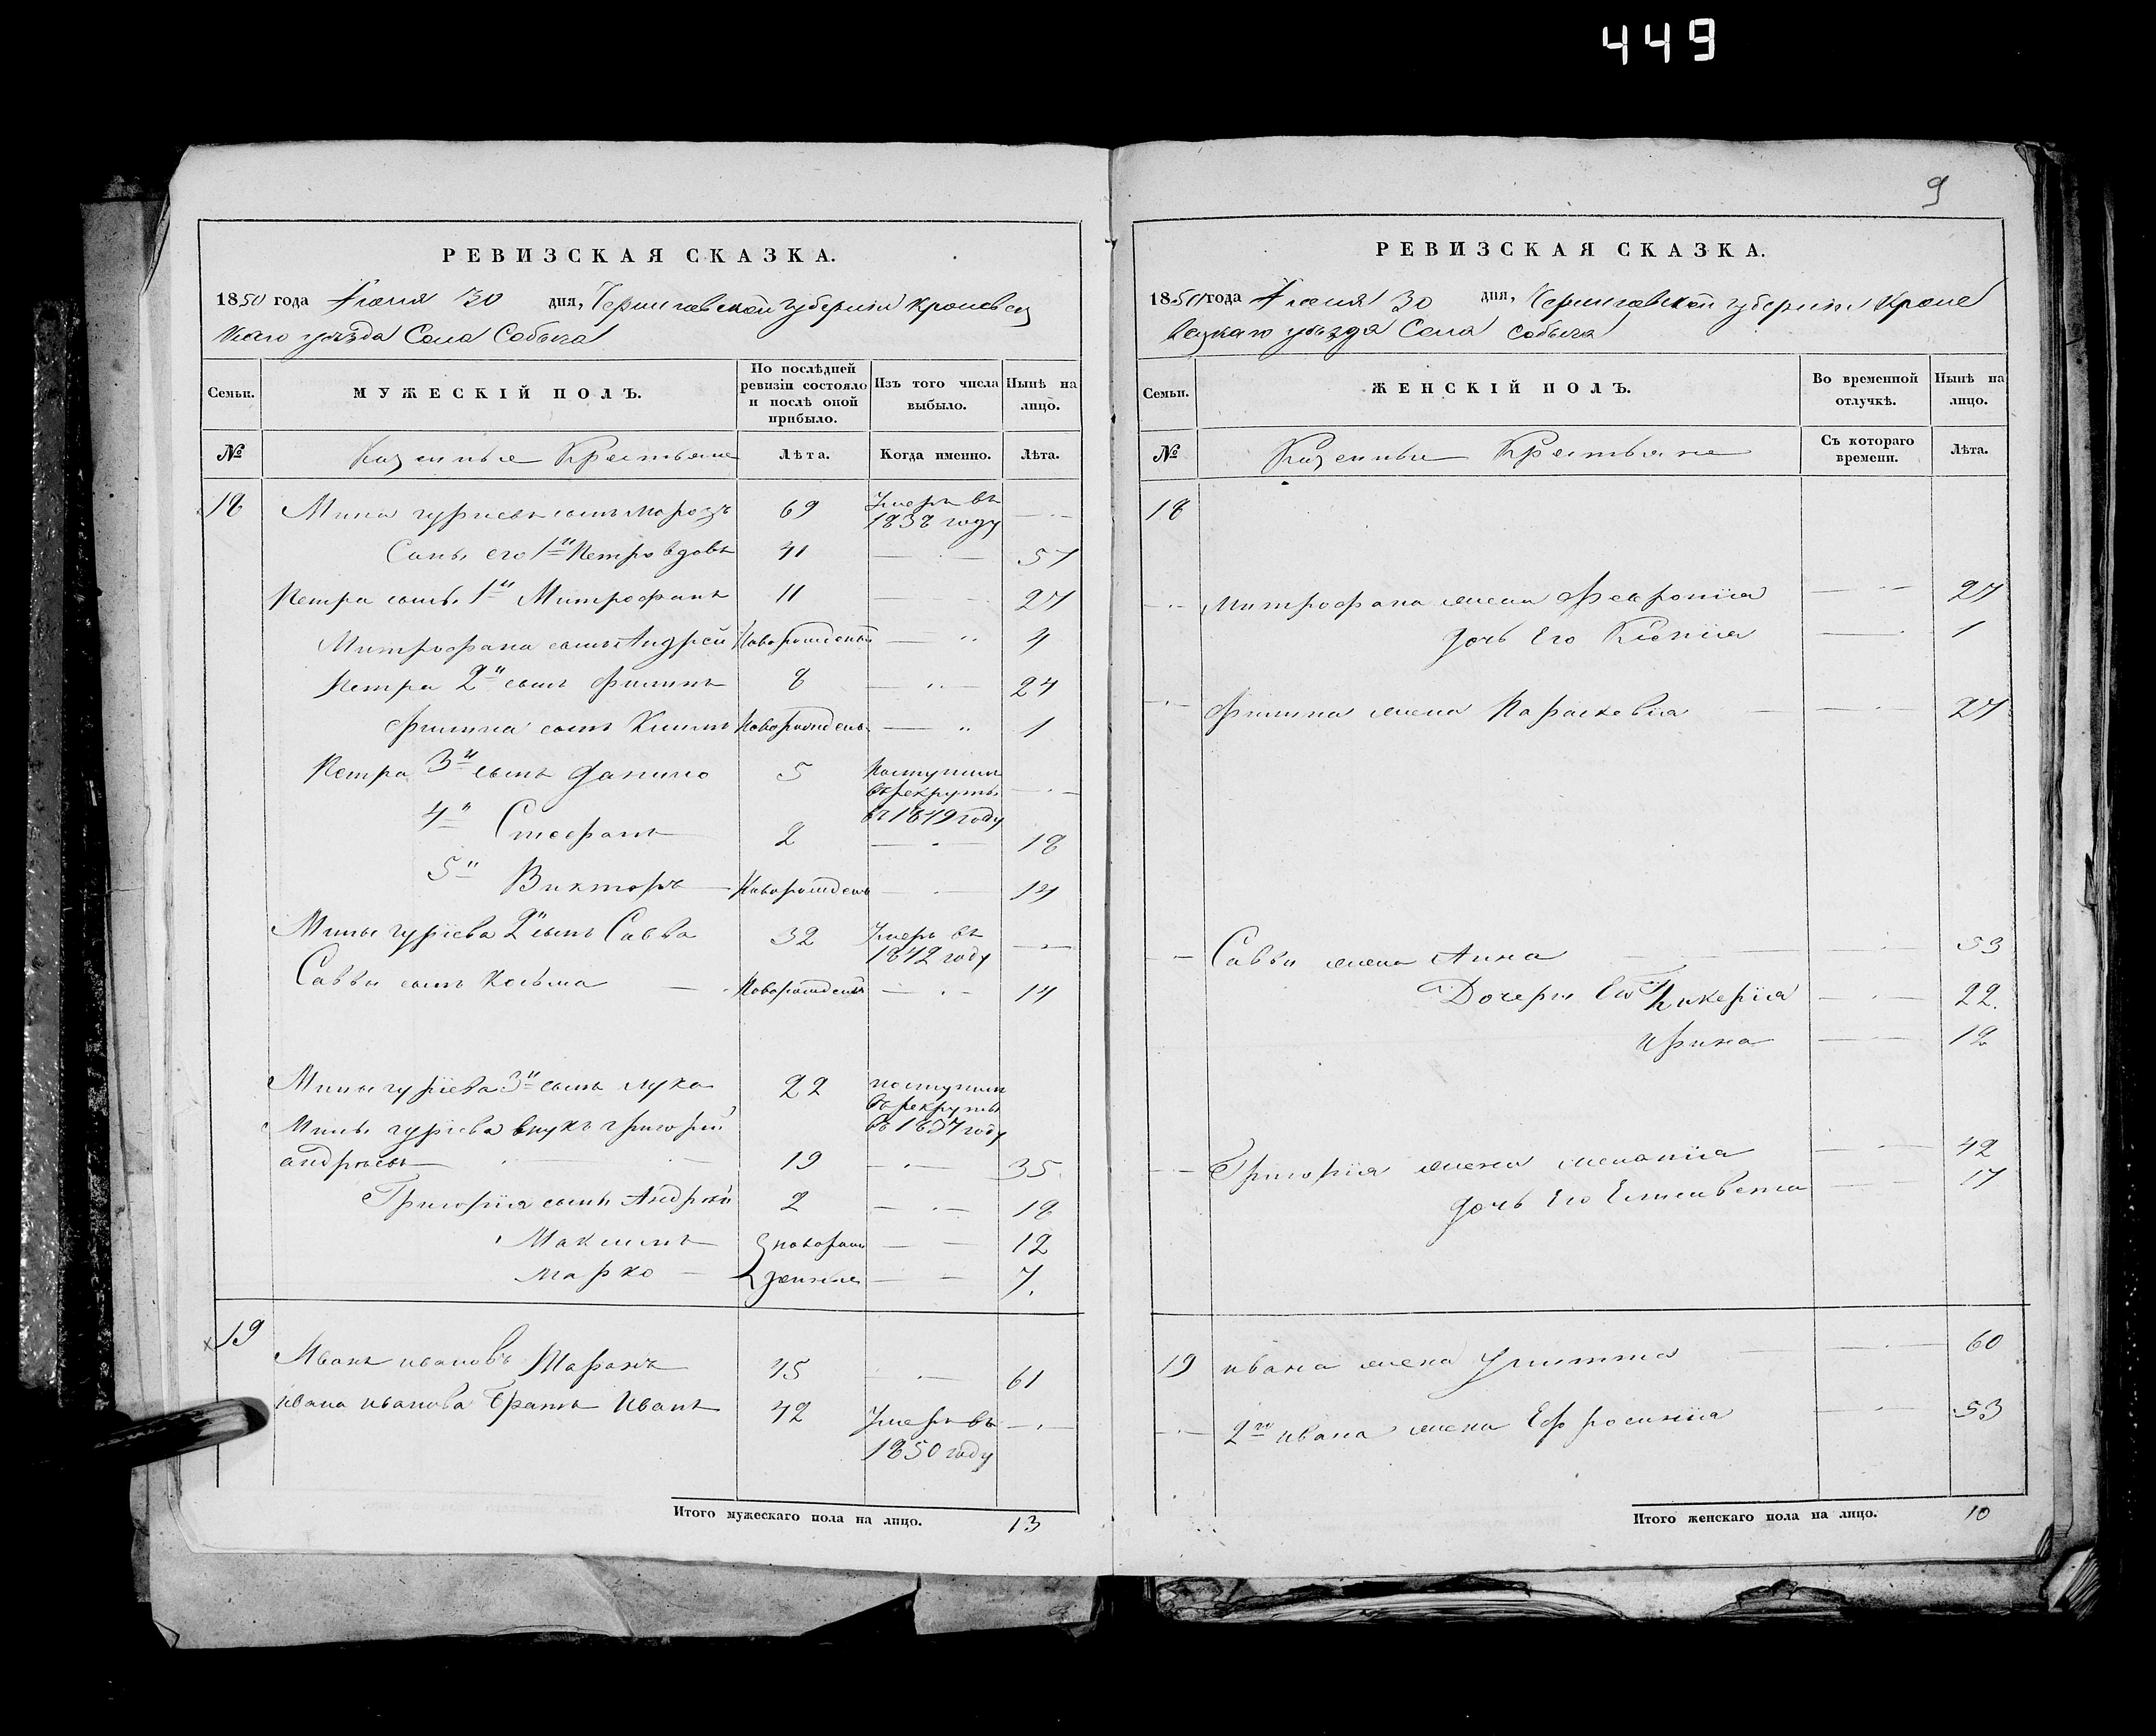 449
9
РЕВИЗСКАЯ СКАЗКА.
1850 года Июня 30 дня, Черниговской губернии Кролевец
каго уѣзда Села Собыча
Семьи. МУЖЕСКІЙ ПОЛЪ. По послѣдней ревизіи состояло и послѣ оной прибыло. Изъ того числа выбыло. Нынѣ на лицо.
№ Казенные Крестьяне Лѣта. Когда именно. Лѣта.
18 Мина гуриевъ сынъ Морозъ 69 Умеръ въ 1838 году
Сынъ его 1й Петро вдовъ 41 57
Петра сынъ 1й Митрофанъ 11 27
Митрофана сынъ Андрей Новорожденый 4
Петра 2й сынъ Филипъ 8 24
Филипа сынъ Климъ Новорожденъ 1
Петра 3й сынъ Данило 5 Поступилъ въ рекруты въ 1849 году
4й Стефанъ 2 18
5й Викторъ Новорожденъ 14
Мины гуріева 2й сынъ Савва 32 Умеръ въ 1842 году
Саввы сынъ Косьма Новорожденъ 14
Мины гуріева 3й сынъ лука 22 поступилъ въ рекруты въ 1837 году
Мины гуріева внукъ григорій
андрѣевъ 19 35.
Григорія сынъ Андрѣй 2 18
Максимъ новорож 12
Марко денные 7.
19 Иванъ ивановъ Шаранъ 45 61
ивана иванова братъ Иванъ 42 Умеръ въ 1850 году
Итого мужескаго пола на лицо. 13
РЕВИЗСКАЯ СКАЗКА.
1850 года Июня 30 дня, Черниговской губерніи Кроле
вецкаго уѣзда Села Собыча
Семьи. ЖЕНСКІЙ ПОЛЪ. Во временной отлучкѣ. Нынѣ на лицо.
№ Казенные Крестьяне Съ котораго времени. Лѣта.
18
Митрофана жена Февронія 27
дочь Его Ксенія 1
Филипа жена Параскевія 27
Саввы жена Анна 53
Дочери Его Гликерія 22.
ирина 19
Григорія жена меланія 42
дочь Его Елисавета 17
19 ивана жена Улитта 60
2го ивана жена Ефросинія 53
Итого женскаго пола на лицо. 10